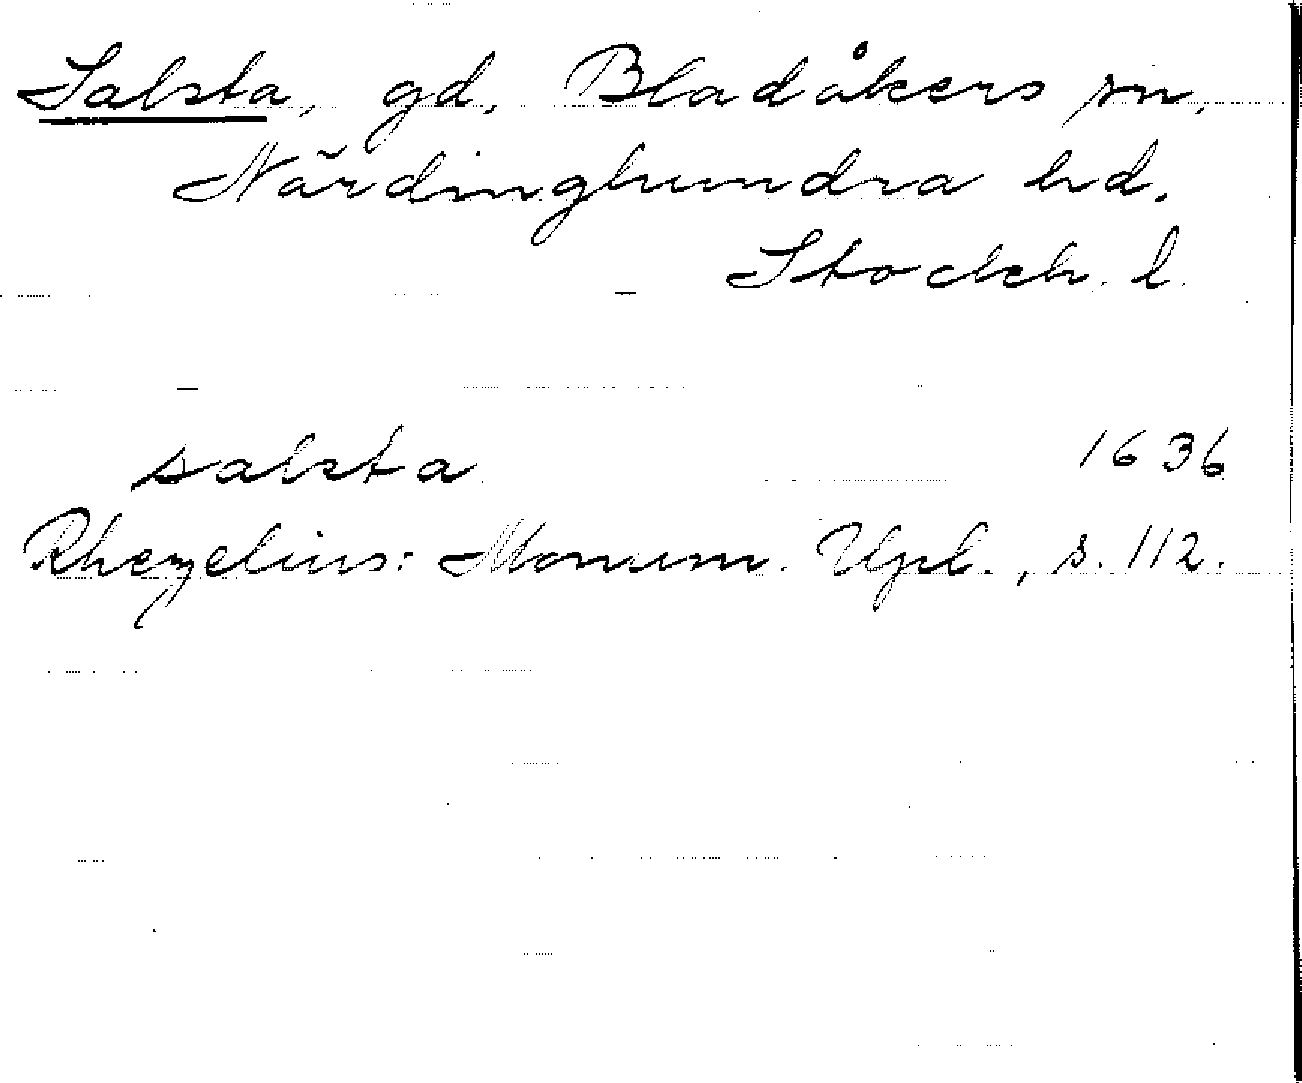 Salsta, gd, Bladåkers sn,
Närdinghundra hd.
Stockh. l.
salsta 1636
Rhezelius: Monum. Upl., s. 112.